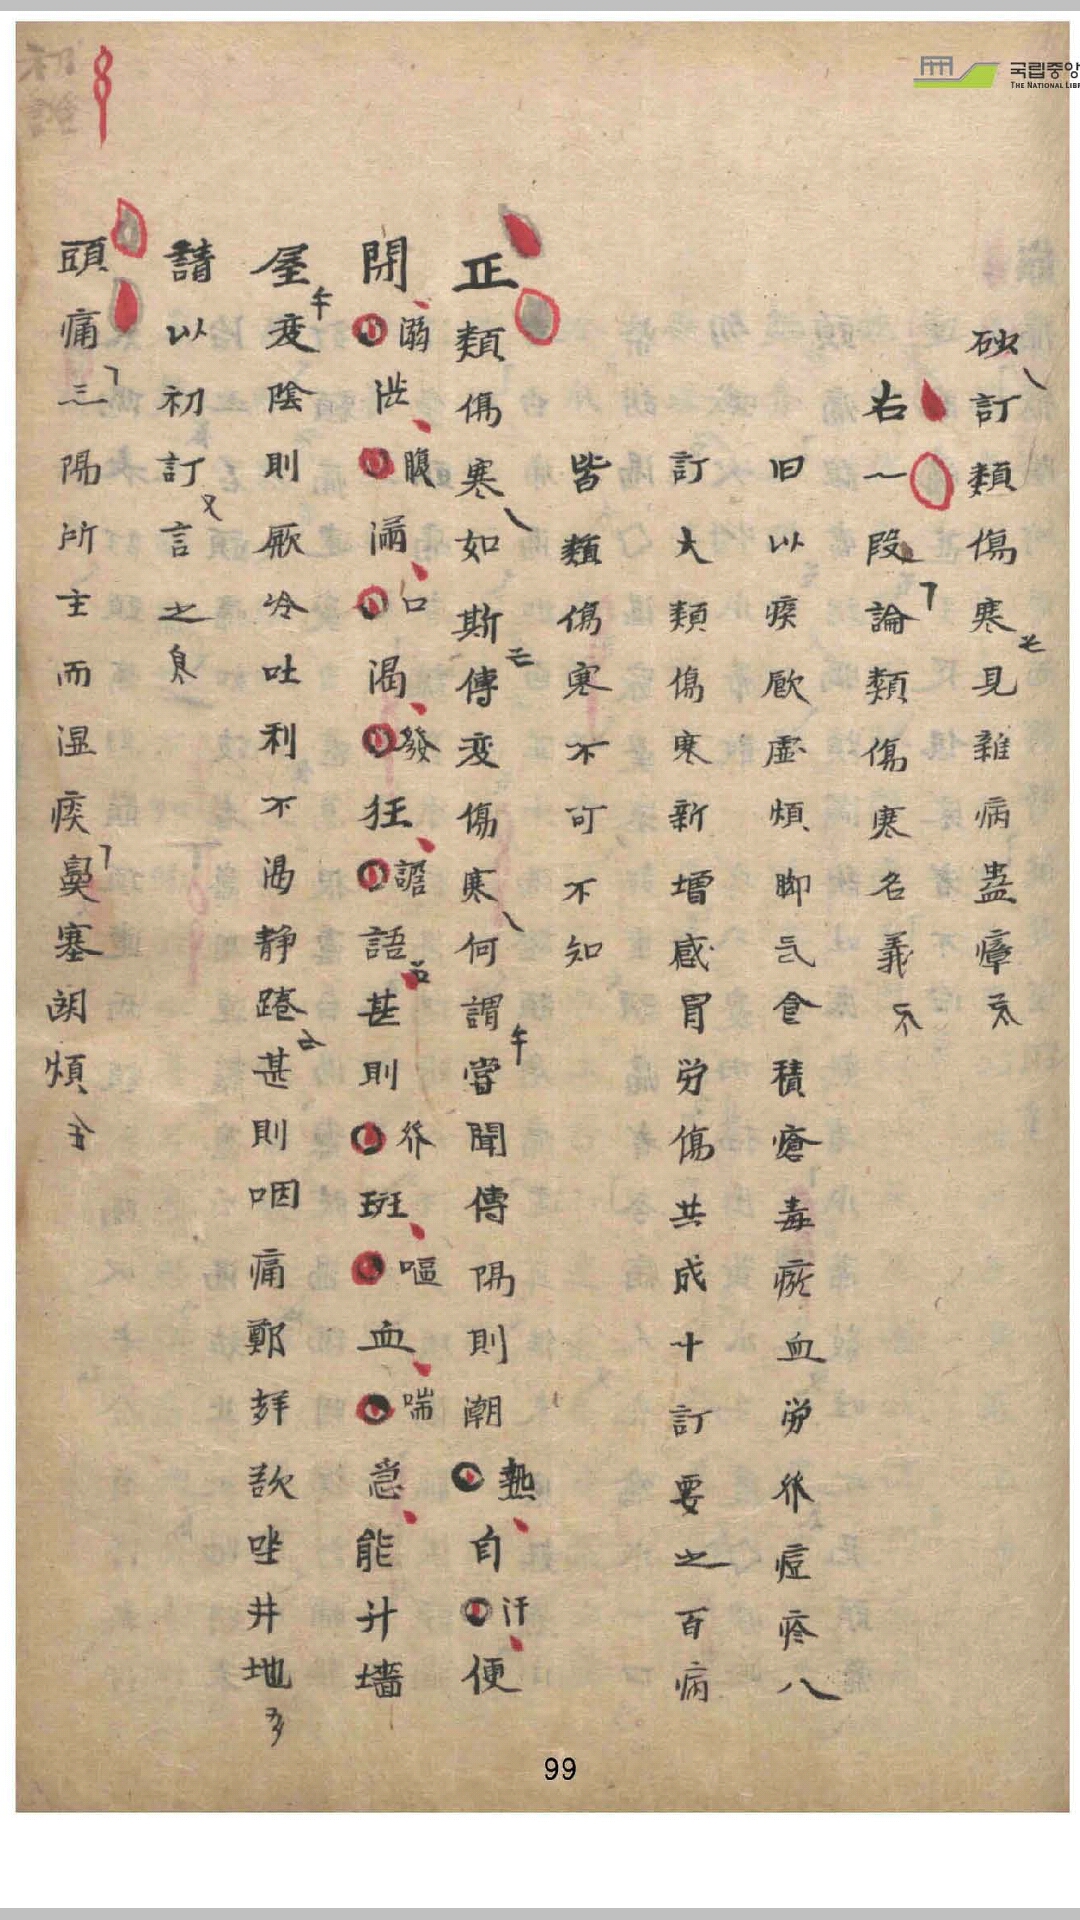 국립중앙
THE NATIONAL LIBR
訂類傷寒見雜病蠱瘴
右一段論類傷寒名義
旧以痰厥虛煩脚气食積瘡毒瘀血労發痘疹八
訂大類傷寒新增感冒労傷共成十訂要之百病
皆類傷寒不可不知
正類傷寒如斯傳変傷寒何謂嘗聞傳陽則潮熱自汗便
閉溺澁腹滿口渴發狂譫語甚則發斑嘔血喘急能升墻
屋変陰則厥冷吐利不渴静踡甚則咽痛鄭声欲坐井地
請以初訂言之
頭痛三陽所主而湿痰鼻塞煩
99